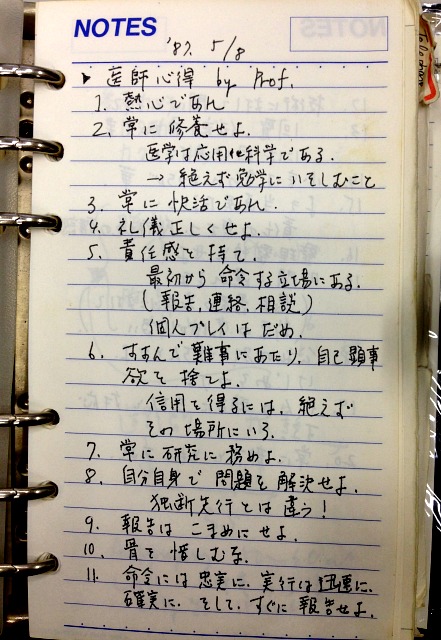 NOTES
'87. 5/8
▶ 医師心得 by Prof.
1. 熱心であれ
2. 常に修養せよ.
医学は応用化科学である.
→ 絶えず勉学にいそしむこと
3. 常に快活であれ.
4. 礼儀正しくせよ.
5. 責任感を持て.
最初から命令する立場にある.
(報告, 連絡, 相談)
個人プレイはだめ.
6. すすんで難事にあたり, 自己顕事
欲を捨てよ.
信用を得るには, 絶えず
その場所にいろ.
7. 常に研究に務めよ.
8. 自分自身で問題を解決せよ.
独断先行とは違う!
9. 報告はこまめにせよ.
10. 骨を惜しむな.
11. 命令には忠実に. 実行は迅速に.
確実に. そして, すぐに報告せよ.